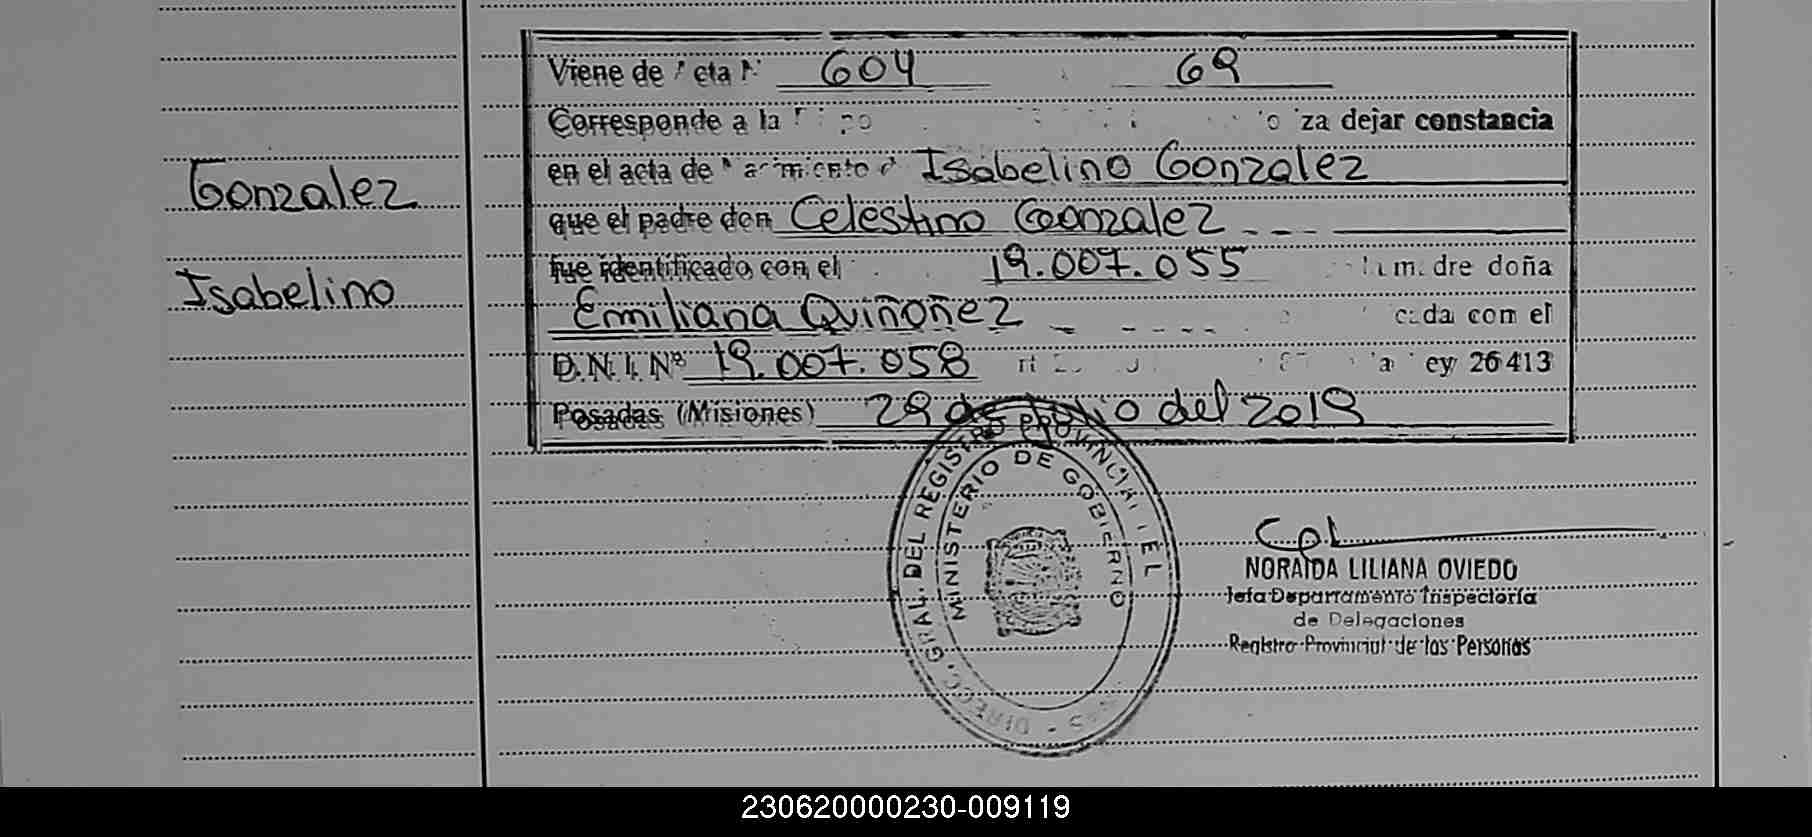 Viene de Acta N° 604 69
Corresponde a la
za dejar constancia
en el acta de Nacimiento d Isabelino Gonzalez
Gonzalez
que el padre don Celestino Gonzalez
fue identificado con el 19.007.055 la madre doña
Isabelino
Emiliana Quiñoñez cada con el
D.N.I. N° 19.007.058 Ley 26413
Posadas (Misiones) 29 de Julio del 2019
DIRECC. GRAL. DEL REGISTRO PROVINCIAL DE L
MINISTERIO DE GOBIERNO
NORAIDA LILIANA OVIEDO
Jefa Departamento Inspectoría
de Delegaciones
Registro Provincial de las Personas
230620000230-009119